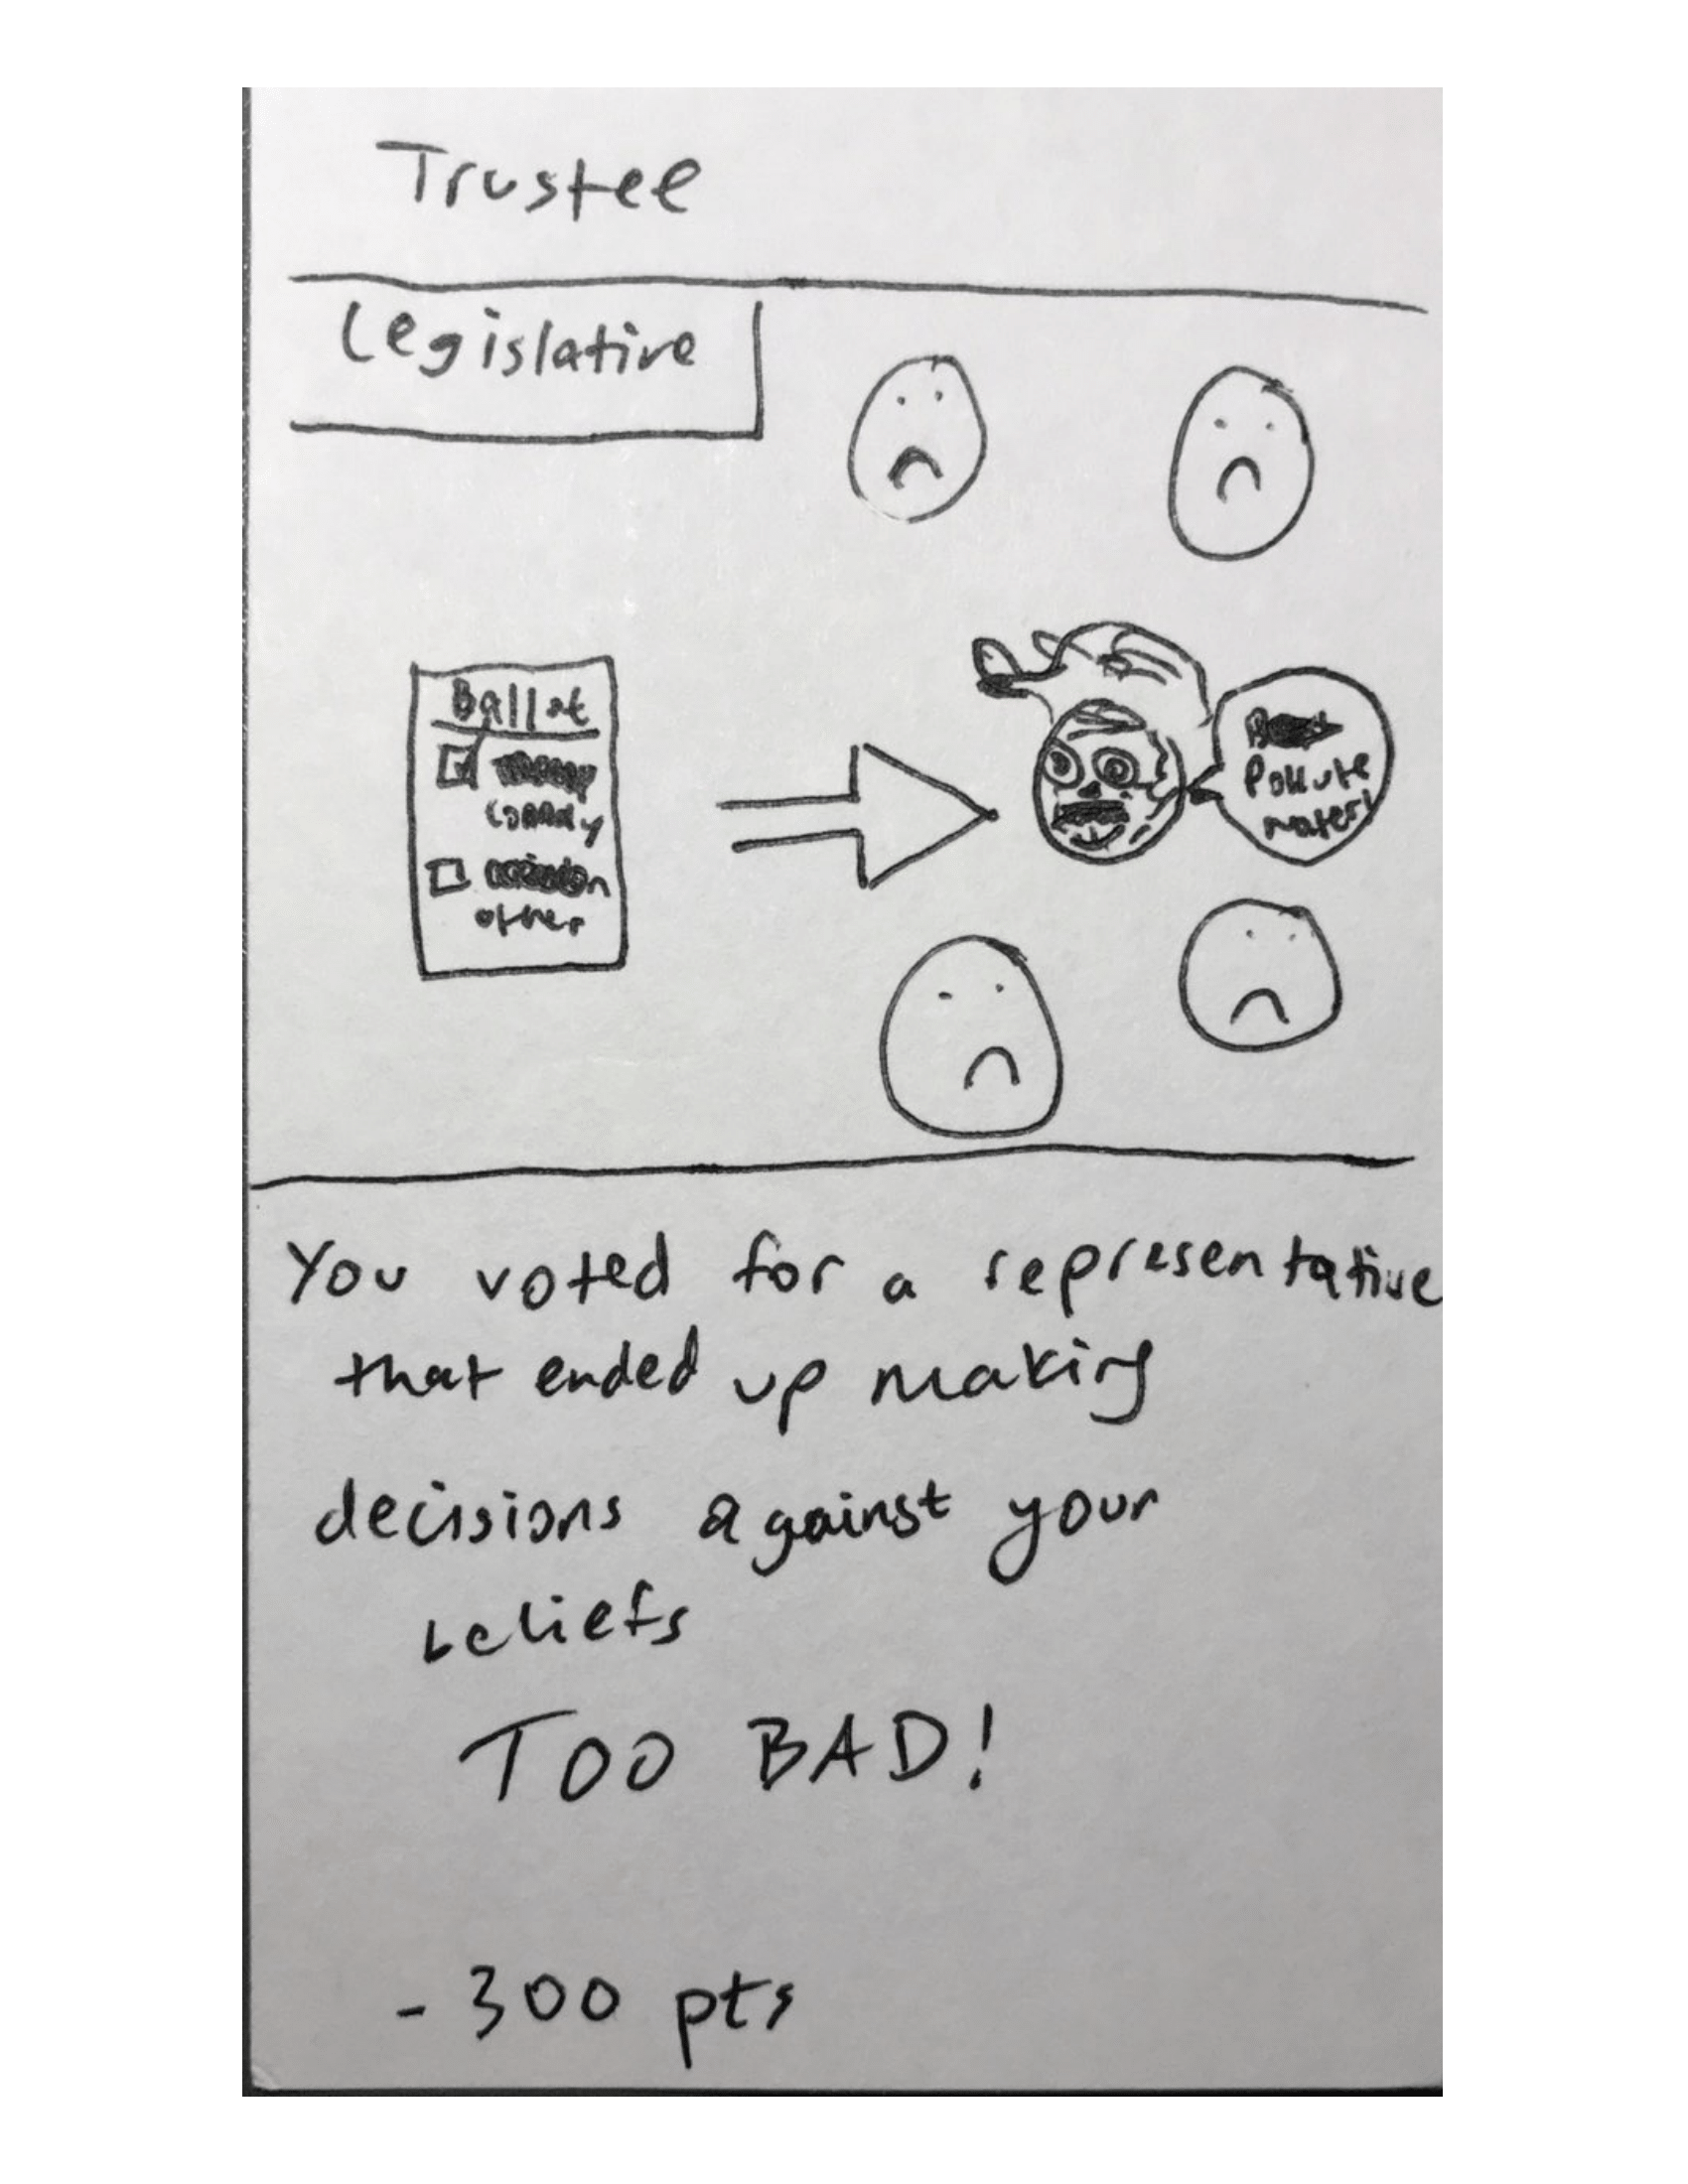 Trustee
Legislative
Ballot
other
Pollute
water!
You voted for a representative
that ended up making
decisions against your
beliefs
TOO BAD!
- 300 pts